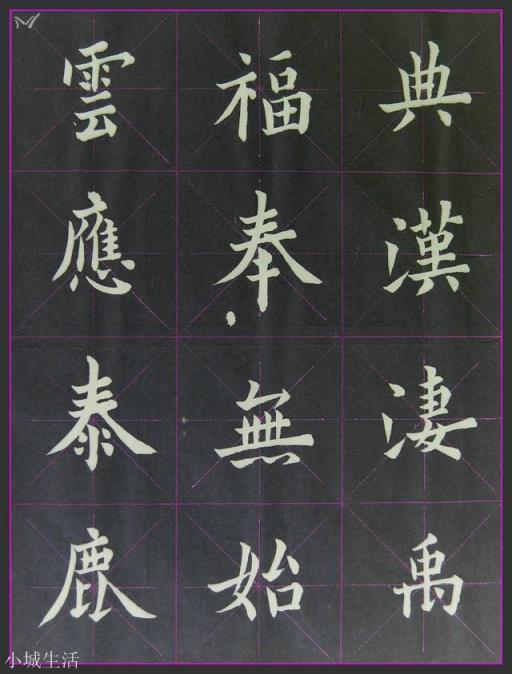 典漢淒禹
福奉無始
雲應泰鹿
小城生活